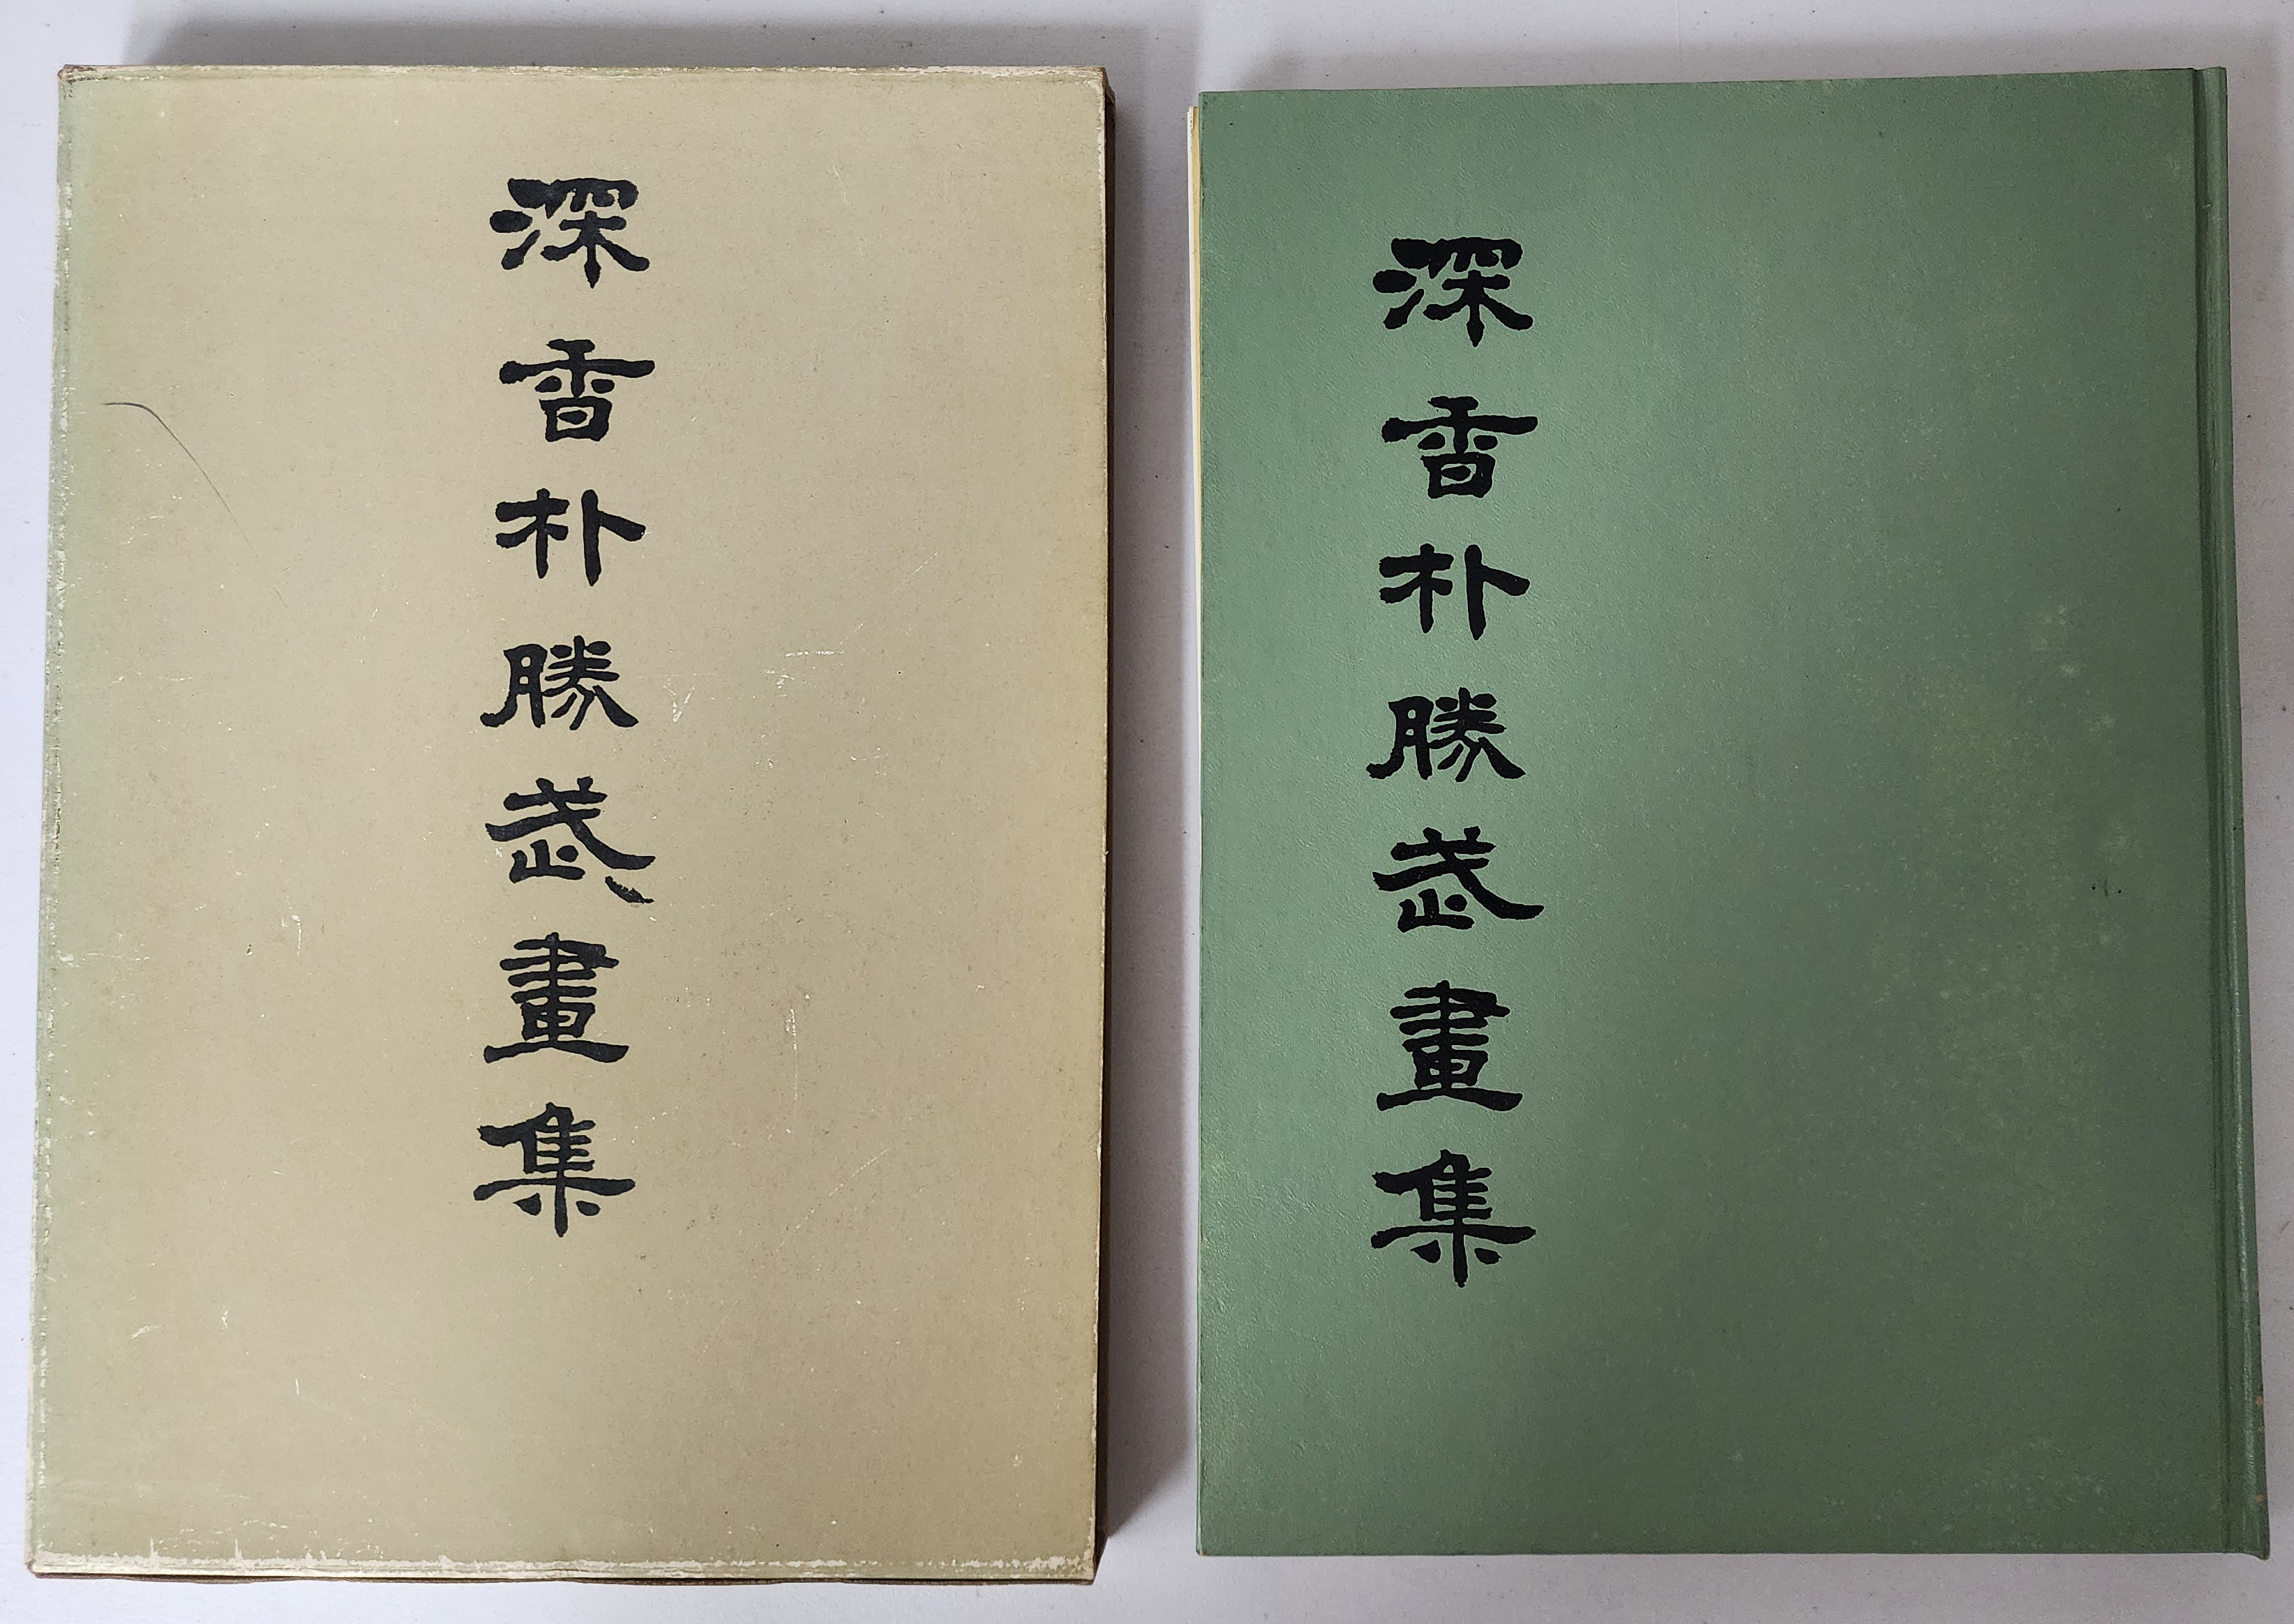 深香朴勝武畫集
深香朴勝武畫集